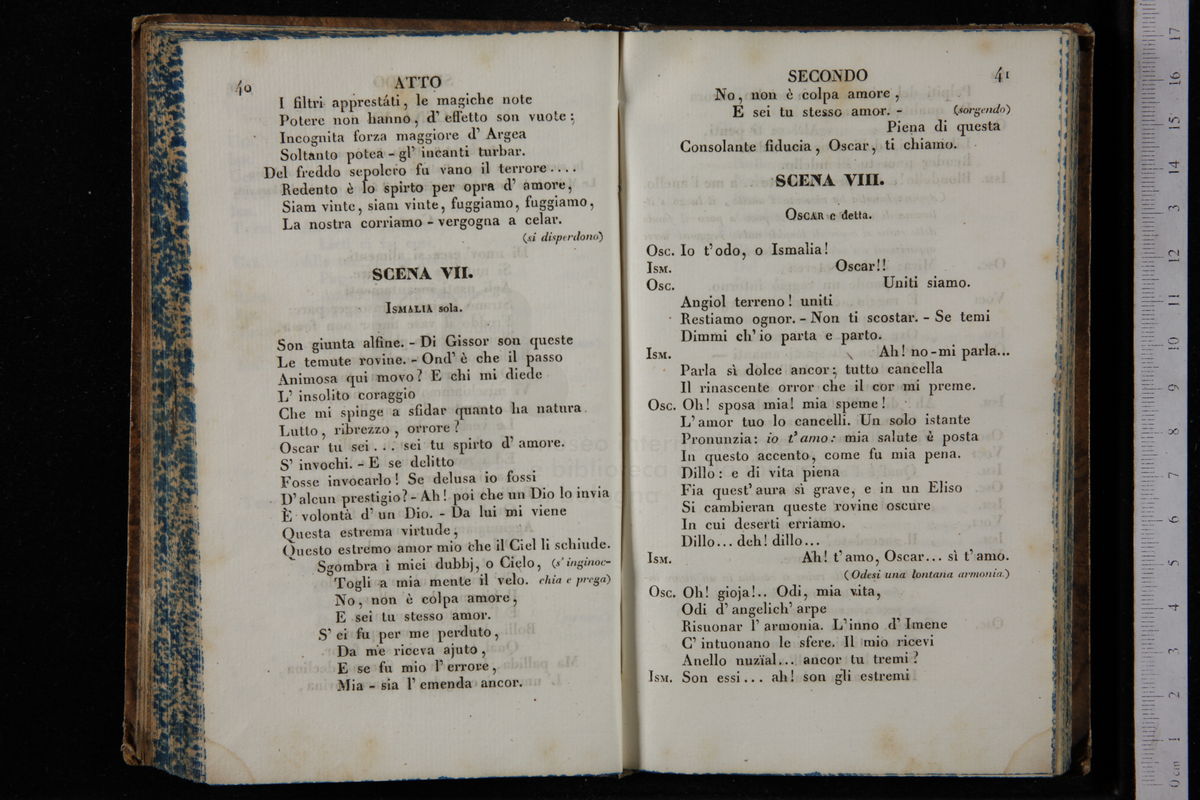 40 ATTO
I filtri apprestáti, le magiche note
Potere non hanno, d' effetto son vuote;
Incognita forza maggiore d' Argea
Soltanto potea - gl' incanti turbar.
Del freddo sepolcro fu vano il terrore....
Redento è lo spirto per opra d' amore,
Siam vinte, siam vinte, fuggiamo, fuggiamo,
La nostra corriamo - vergogna a celar.
(si disperdono)
SCENA VII.
ISMALIA sola.
Son giunta alfine. - Di Gissor son queste
Le temute rovine. - Ond' è che il passo
Animosa qui movo? E chi mi diede
L' insolito coraggio
Che mi spinge a sfidar quanto ha natura
Lutto, ribrezzo, orrore?
Oscar tu sei... sei tu spirto d' amore.
S' invochi. - E se delitto
Fosse invocarlo! Se delusa io fossi
D' alcun prestigio? - Ah! poi che un Dio lo invia
È volontà d' un Dio. - Da lui mi viene
Questa estrema virtude,
Questo estremo amor mio che il Ciel li schiude.
Sgombra i miei dubbj, o Cielo, (s' inginoc-
Togli a mia mente il velo. chia e prega)
No, non è colpa amore,
E sei tu stesso amor.
S' ei fu per me perduto,
Da me riceva ajuto,
E se fu mio l' errore,
Mia - sia l' emenda ancor.
SECONDO 41
No, non è colpa amore,
E sei tu stesso amor. - (sorgendo)
Piena di questa
Consolante fiducia, Oscar, ti chiamo.
SCENA VIII.
OSCAR e detta.
Osc. Io t' odo, o Ismalia!
Ism. Oscar!!
Osc. Uniti siamo.
Angiol terreno! uniti
Restiamo ognor. - Non ti scostar. - Se temi
Dimmi ch' io parta e parto.
Ism. Ah! no - mi parla...
Parla sì dolce ancor; tutto cancella
Il rinascente orror che il cor mi preme.
Osc. Oh! sposa mia! mia speme!
L' amor tuo lo cancelli. Un solo istante
Pronunzia: io t' amo: mia salute è posta
In questo accento, come fu mia pena.
Dillo: e di vita piena
Fia quest' aura sì grave, e in un Eliso
Si cambieran queste rovine oscure
In cui deserti erriamo.
Dillo... deh! dillo...
Ism. Ah! t' amo, Oscar... sì t' amo.
(Odesi una lontana armonia.)
Osc. Oh! gioja!.. Odi, mia vita,
Odi d' angelich' arpe
Risuonar l' armonia. L' inno d' Imene
C' intuonano le sfere. Il mio ricevi
Anello nuzïal... ancor tu tremi?
Ism. Son essi... ah! son gli estremi